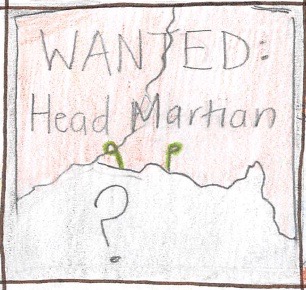 WANTED:
Head Martian
?